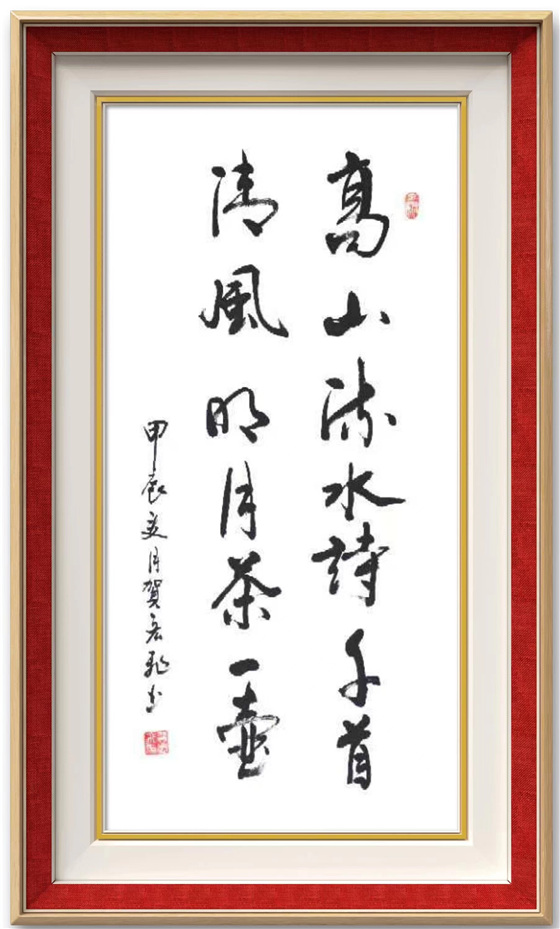 高山流水詩千首
清風明月茶一壷
甲辰夏月賀宏亮书